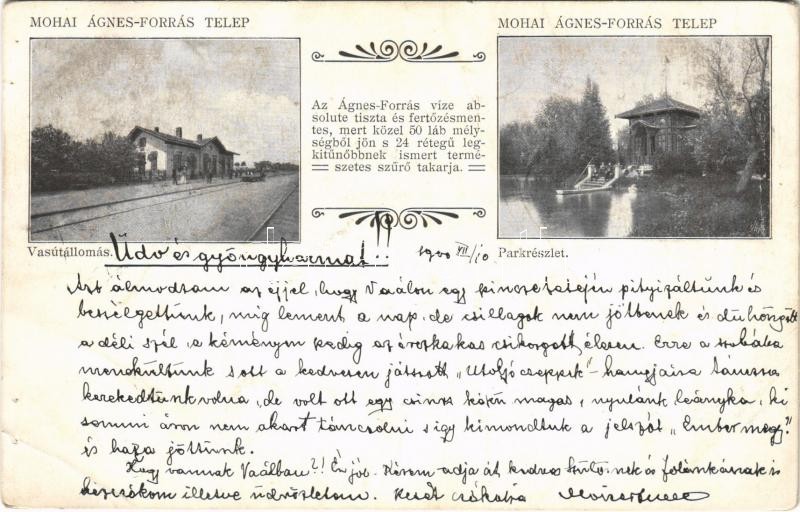 MOHAI ÁGNES-FORRÁS TELEP
MOHAI ÁGNES-FORRÁS TELEP
Az Ágnes-Forrás vize ab-
solute tiszta és fertőzésmen-
tes, mert közel 50 láb mély-
ségből jön s 24 rétegű leg-
kitűnőbbnek ismert termé-
szetes szűrő takarja.
Vasútállomás.
Üdv és gyöngyharmat!!
1900 VII/10
Parkrészlet.
Azt álmodtam az éjjel, hogy Vaálon egy pinczetetején pityizáltunk és
beszélgettünk, míg lement a nap, de csillagok nem jöttenek és dühöngött
a déli szél, a kéményen pedig az érczkakas csikorgott élesen. Erre a szobába
menekültünk s ott a kedvesen játszott "Utolsó cseppek" hangjaira tánczra
kerekedtünk volna, de volt ott egy csinos magas, nyulánk leányka, ki
semmi áron nem akart tánczolni s így kimondtuk a jelszót "Ember megy!"
és haza jöttünk.
Hogy vannak Vaálban?! Én jól. Kérem adja át kedves Szüleinek és
kézcsókom illetve üdvözletem. Kezét csókolja